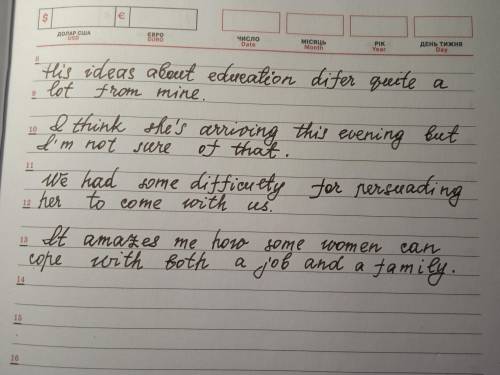 $ €
ДОЛАР США ЄВРО ЧИСЛО МІСЯЦЬ РІК ДЕНЬ ТИЖНЯ
USD EURO Date Month Year Day
8
His ideas about education difer quite a
9 lot from mine.
10 I think she's arriving this evening but
I'm not sure of that.
11
We had some difficulty for persuading
12 her to come with us.
13 It amazes me how some women can
cope with both a job and a family.
14
15
16